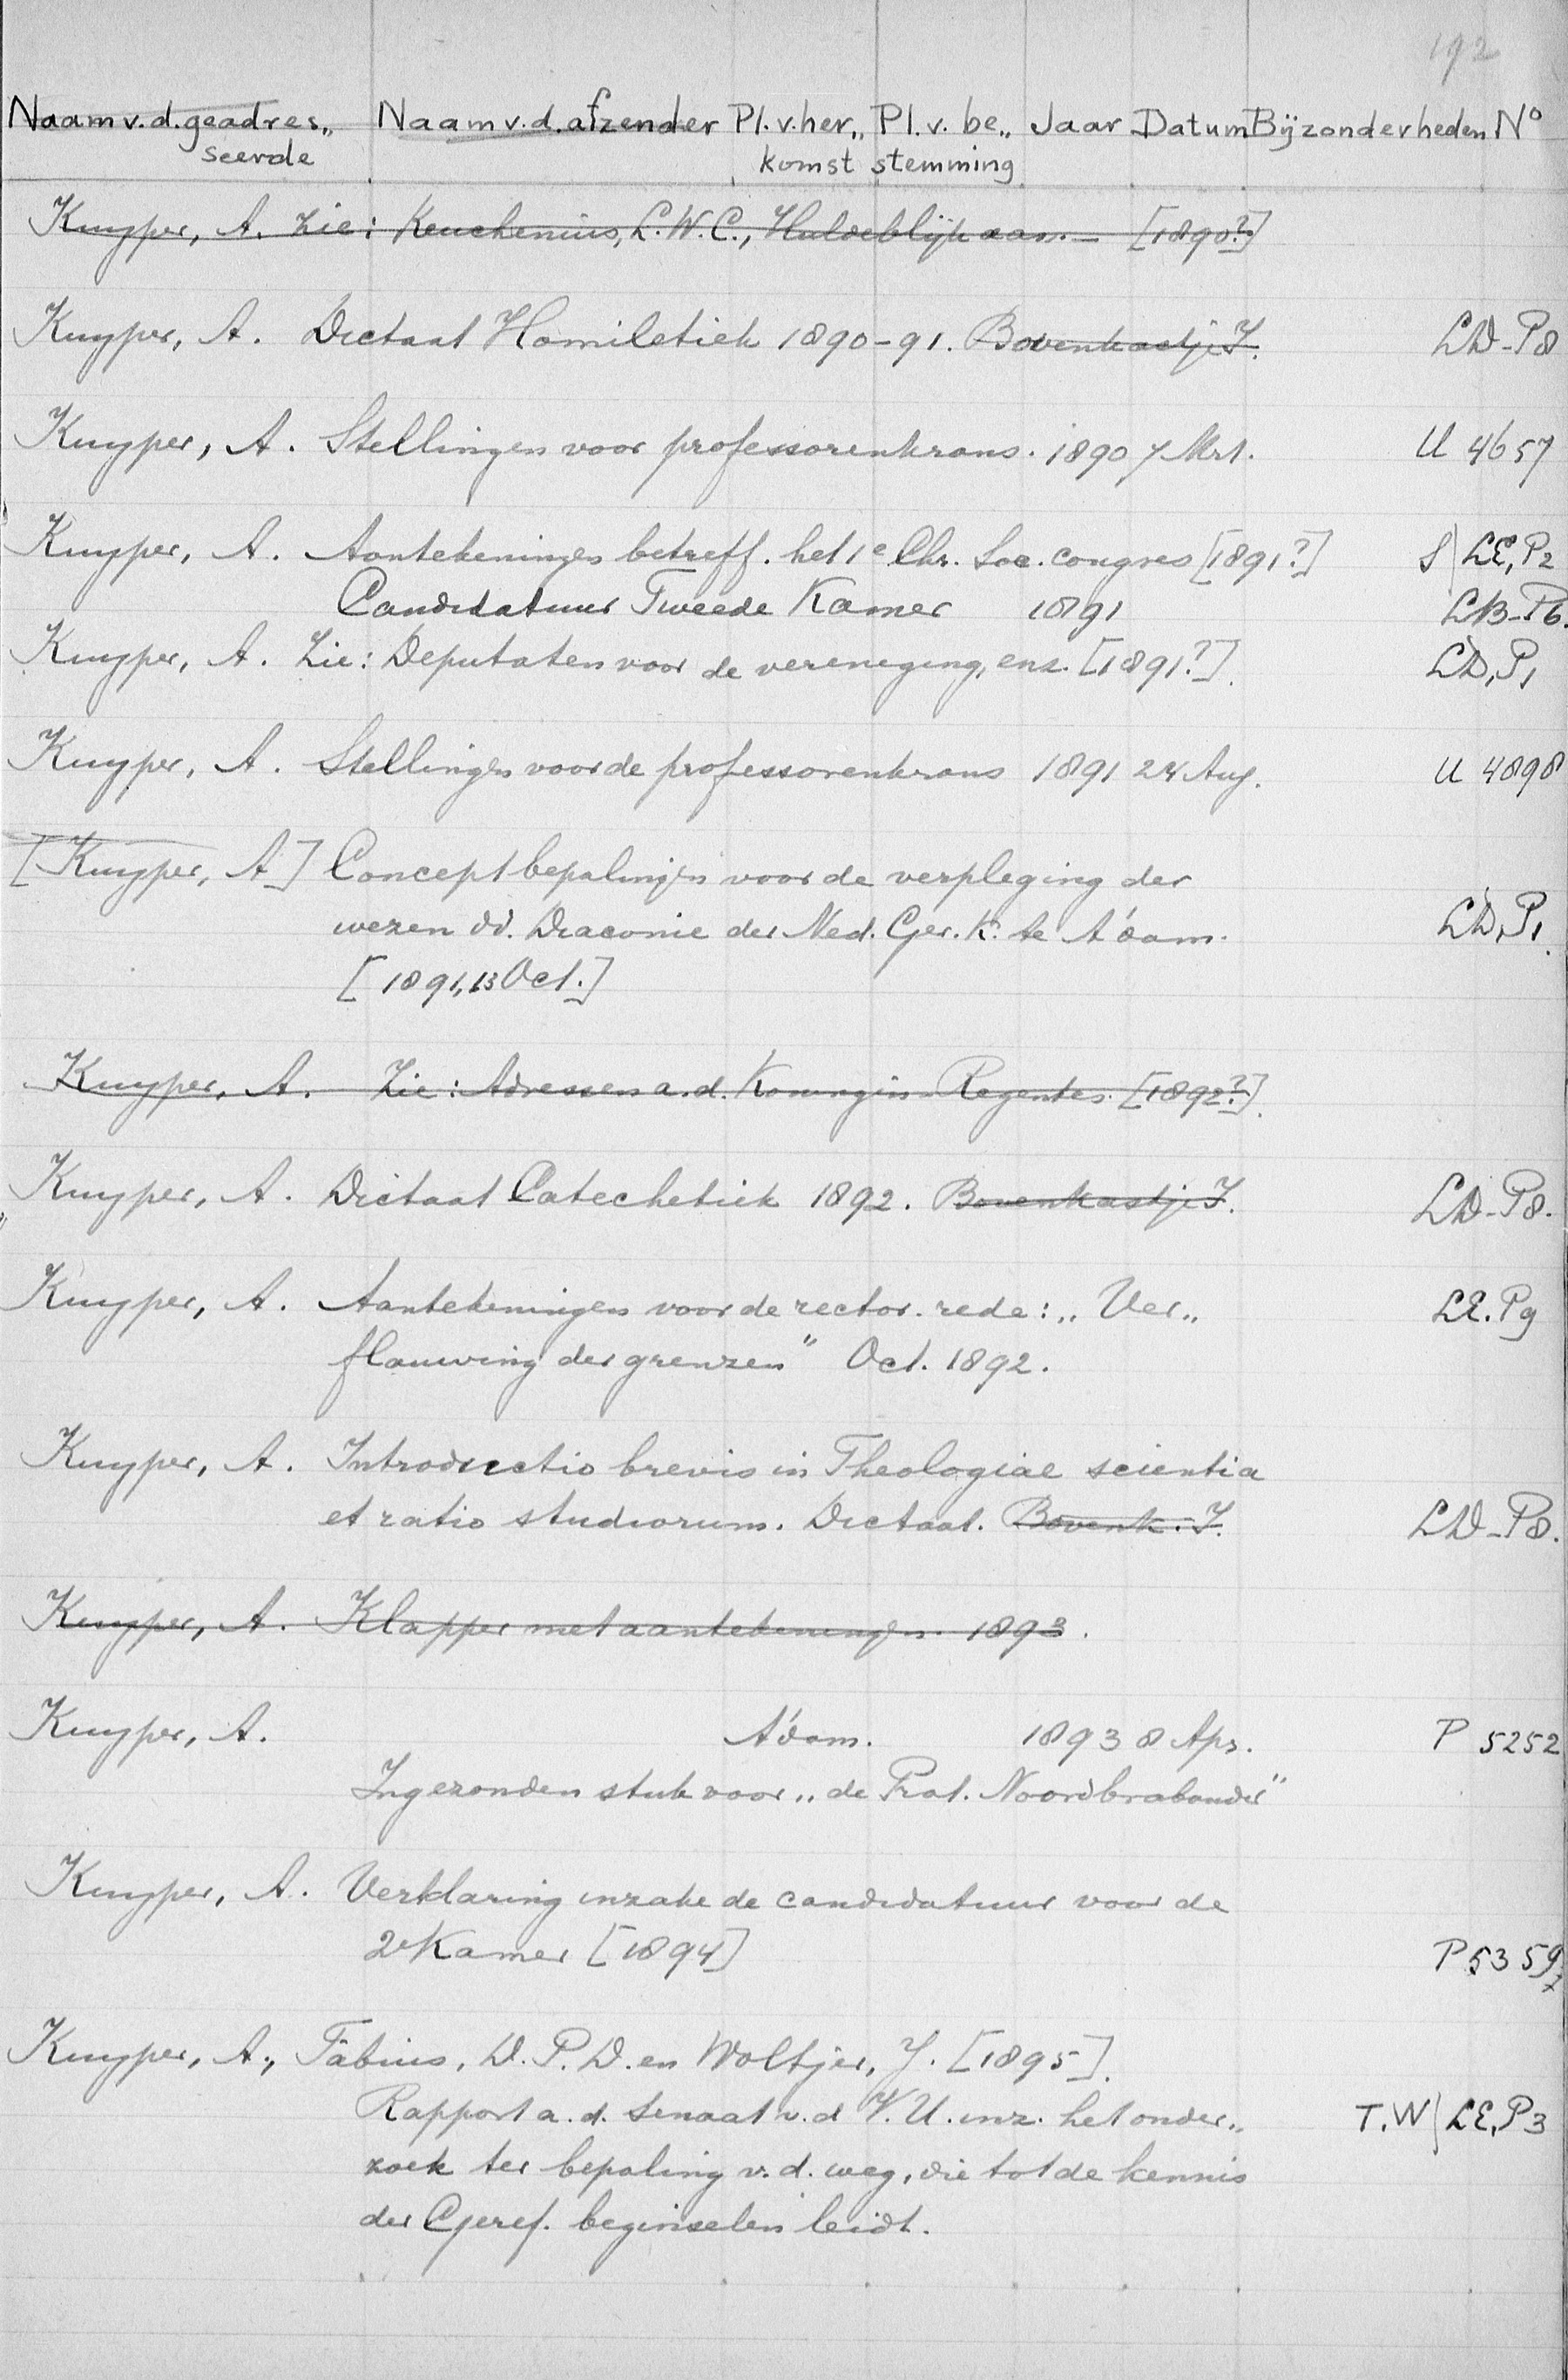 192
Naam v.d. geadres„ Naam v.d. afzender Pl. v. her„ Pl. v. be„ Jaar Datum Bijzonderheden No
seerde komst stemming
Kuyper, A. Zie: Keuchenius, L.W.C., Huldeblijk aan. — [1890?]
Kuyper, A. Dictaat Homiletiek 1890-91. Bovenkastje I. LD-P8
Kuyper, A. Stellingen voor professorenkrans. 1890 7 Mrt. U 4657
Kuyper, A. Aantekeningen betreff. het 1e Chr. Soc. congres [1891?] S | LE, P2
Candidatuur Tweede Kamer 1891 LB-P6.
Kuyper, A. Zie: Deputaten voor de vereneging, enz. [1891?]. LD, P1
Kuyper, A. Stellingen voor de professorenkrans 1891 24 Aug. U 4898
[Kuyper, A] Concept bepalingen voor de verpleging der
wezen dd. Diaconie der Ned. Ger. K. te A'dam. LD, P1.
[1891, 13 Oct.]
Kuyper, A. Zie: Adressen a.d. Koningin-Regentes. [1892?].
Kuyper, A. Dictaat Catechetiek 1892. Bovenkastje I. LD-P8.
Kuyper, A. Aantekeningen voor de rector. rede: „Ver„ LE. P9
flauwing der grenzen" Oct. 1892.
Kuyper, A. Introductio brevis in Theologiae scientia
et ratio studiorum. Dictaat. Bovenk. I. LD-P8.
Kuyper, A. Klapper met aantekeningen. 1893.
Kuyper, A. A'dam. 1893 8 Apr. P 5252
Ingezonden stuk voor „de Prot. Noordbrabander"
Kuyper, A. Verklaring inzake de candidatuur voor de
2e Kamer [1894] P 5359x
Kuyper, A., Fabius, D.P.D. en Woltjer, J. [1895].
Rapport a.d. Senaat v.d V.U. inz. het onder„ T.W | LE, P3
zoek ter bepaling v.d. weg, die tot de kennis
der Geref. beginselen leidt.